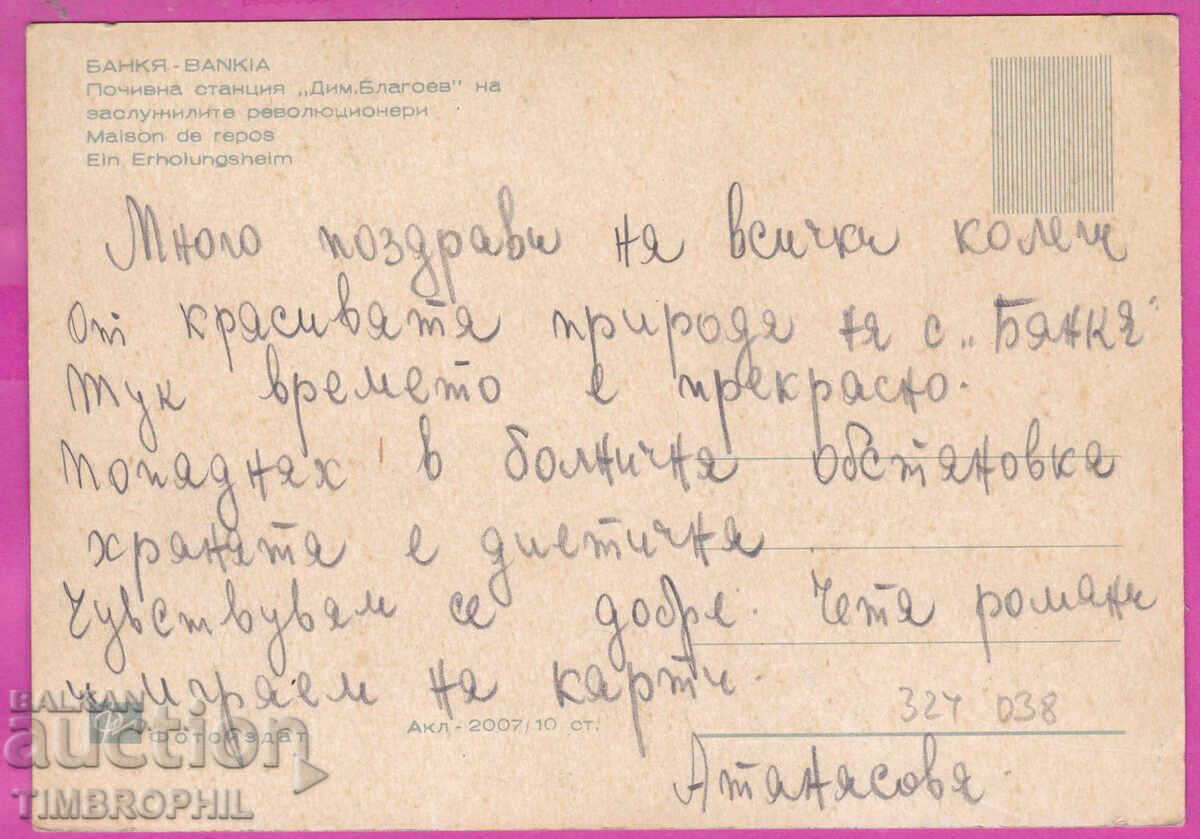 БАНКЯ - BANKIA
Почивна станция „Дим.Благоев" на
заслужилите революционери
Maison de repos
Ein Erholungsheim
Много поздрави на всички колеги
от красивата природа на с. „Банкя"
Тук времето е прекрасно.
Попаднах в болнична обстановка
храната е диетична
Чувствувам се добре. Чета романи
и играем на карти.
324 038
Фотоиздат
Акл-2007/10 ст.
Атанасова.
BALKAN
auction
TIMBROPHIL